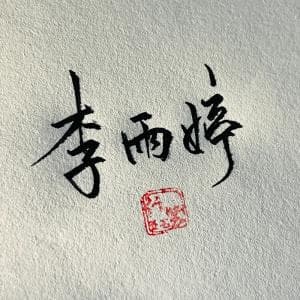 李雨婷